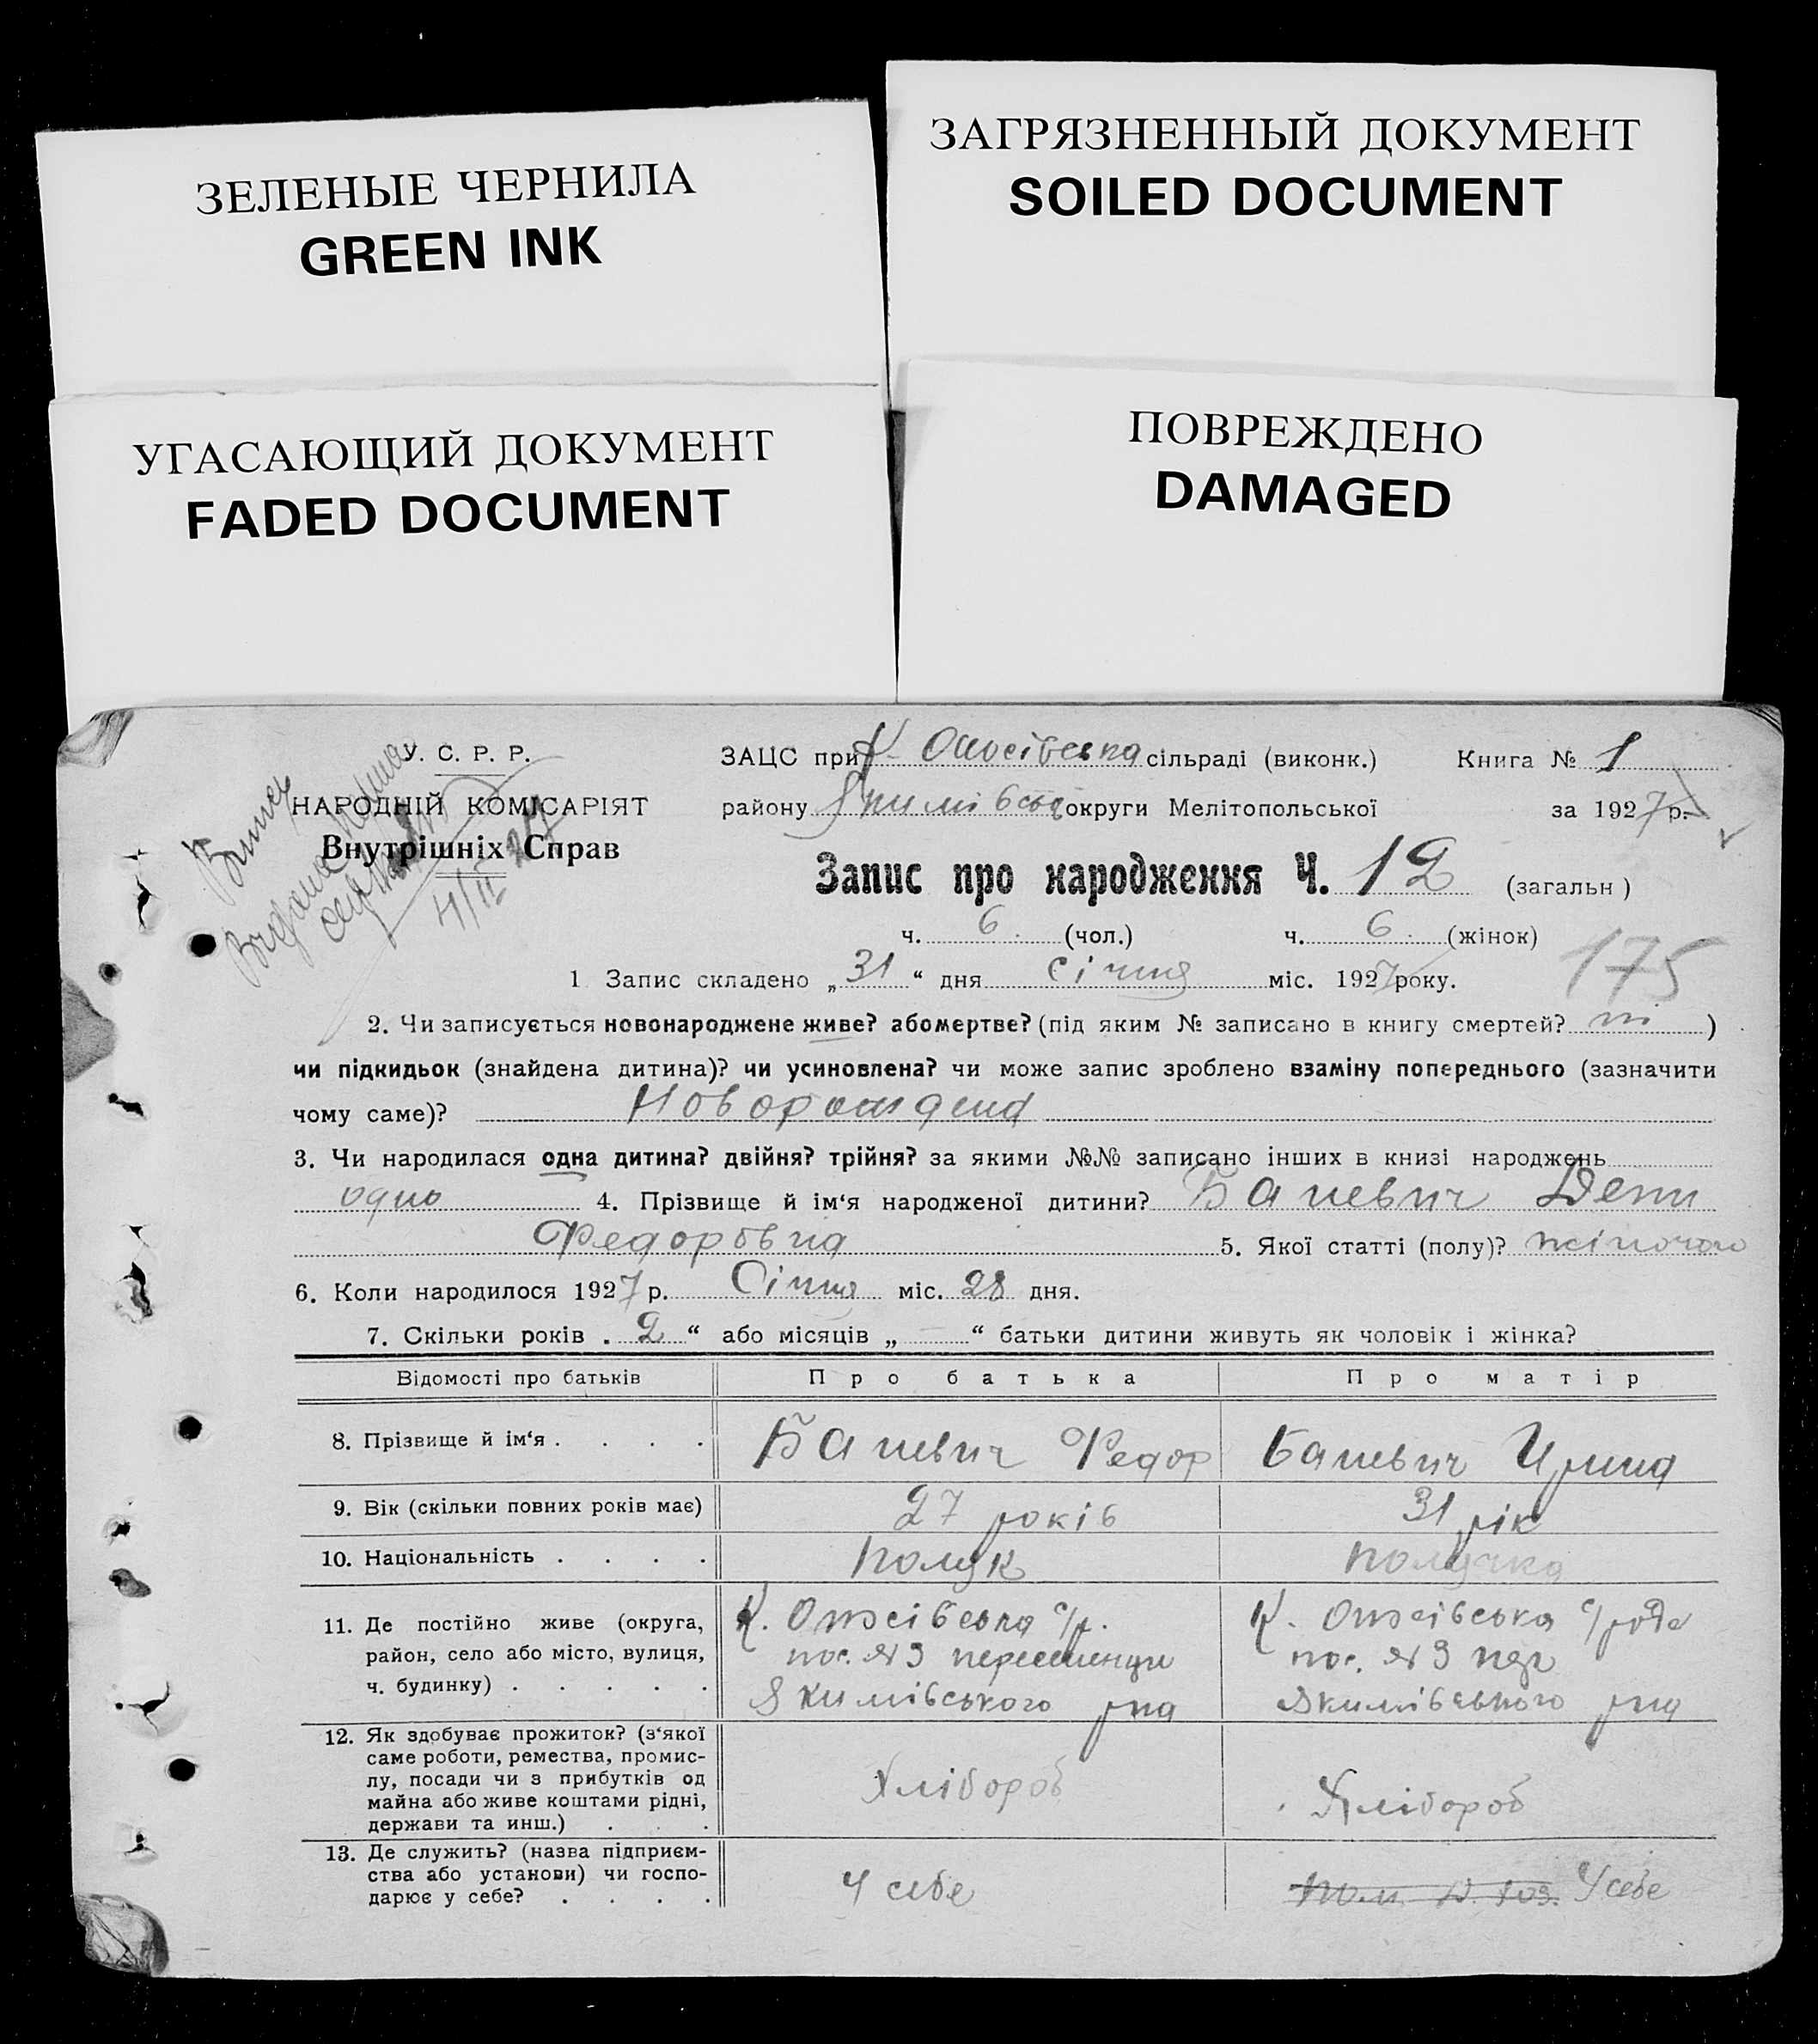 ЗЕЛЕНЫЕ ЧЕРНИЛА
GREEN INK
ЗАГРЯЗНЕННЫЙ ДОКУМЕНТ
SOILED DOCUMENT
УГАСАЮЩИЙ ДОКУМЕНТ
FADED DOCUMENT
ПОВРЕЖДЕНО
DAMAGED
У. С. Р. Р.
НАРОДНІЙ КОМІСАРІЯТ
Внутрішніх Справ
4/II 27
ЗАЦС при сільраді (виконк.) Книга № 1
району Якимівської округи Мелітопольської за 1927 р.
Запис про народження Ч. 12 (загальн)
ч. 6 (чол.) ч. 6 (жінок)
175
1 Запис складено „31“ дня січня міс. 1927 року.
2. Чи записується новонароджене живе? або мертве? (під яким № записано в книгу смертей? ні)
чи підкидьок (знайдена дитина)? чи усиновлена? чи може запис зроблено взаміну попереднього (зазначити
чому саме)? Новорожденна
3. Чи народилася одна дитина? двійня? трійня? за якими №№ записано інших в книзі народжень
одно 4. Прізвище й ім‘я народженої дитини? Баневич
Федоровна 5. Якої статті (полу)? жіночого
6. Коли народилося 1927 р. Січня міс. 28 дня.
7. Скільки років „2“ або місяців „—“ батьки дитини живуть як чоловік і жінка?
Відомості про батьків Про батька Про матір
8. Прізвище й ім‘я . . . . Баневич Федор Баневич Ирина
9. Вік (скільки повних років має) 27 років 31 рік
10. Національність . . . . поляк полячка
11. Де постійно живе (округа, К. Онжсівська с/р. К. Онжсівська с/рада
район, село або місто, вулиця, пос. №3 пос. №3
ч. будинку) . . . . . Якимівського р-на Якимівського р-на
12. Як здобуває прожиток? (з‘якої
саме роботи, ремества, промис-
лу, посади чи з прибутків од Хлібороб Хлібороб
майна або живе коштами рідні,
держави та инш.) . . .
13. Де служить? (назва підприєм-
ства або установи) чи госпо- У себе У себе
дарює у себе? . . . .